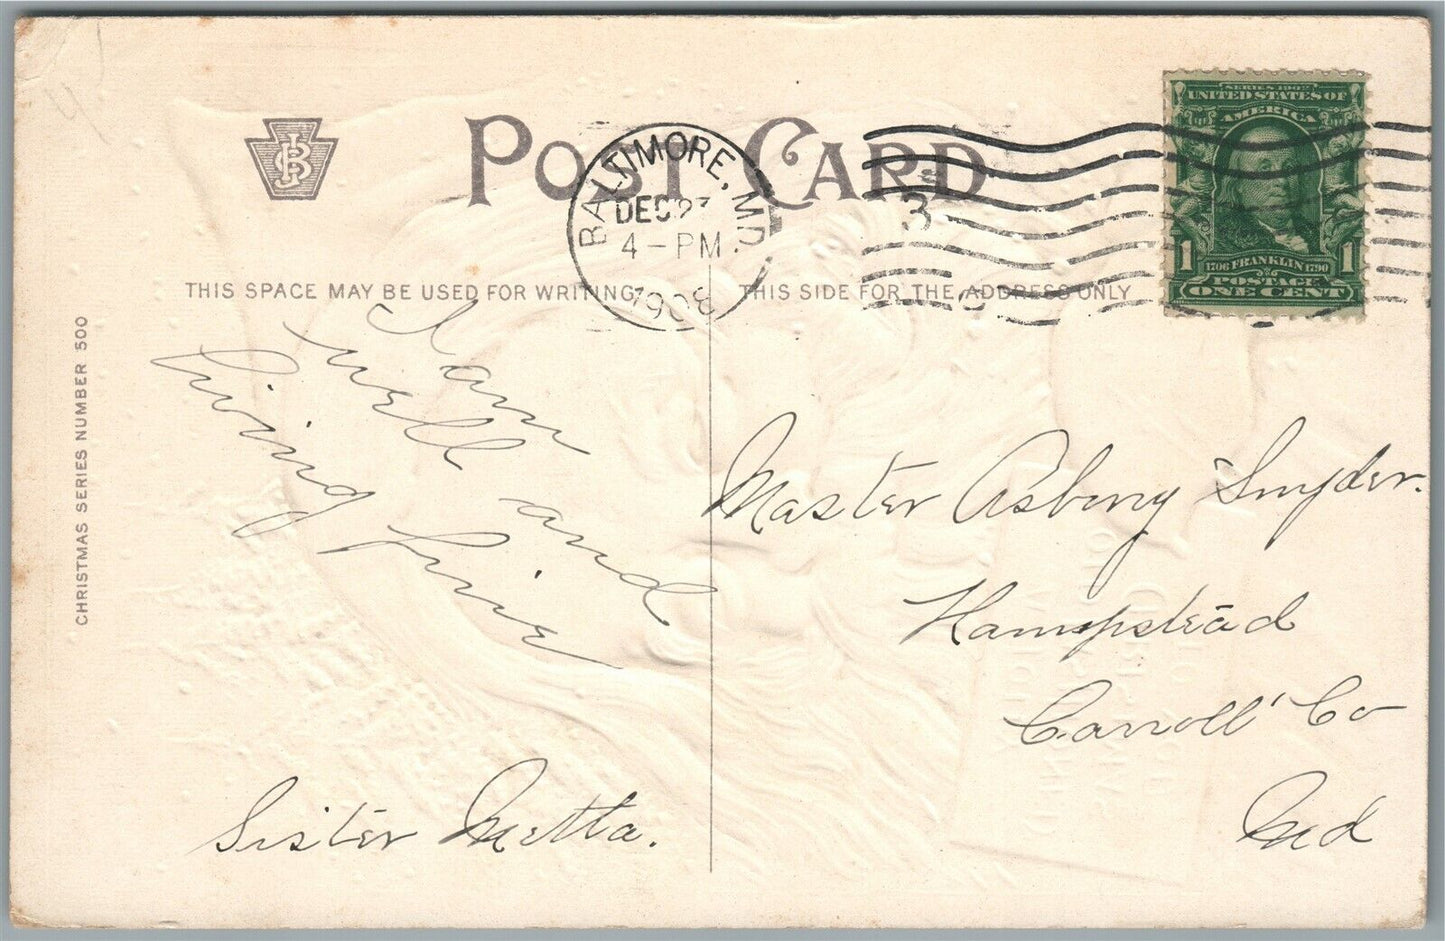 POST CARD
JSB
BALTIMORE, MD.
DEC 23
4-PM
1908
3
SERIES 1902
UNITED STATES OF
AMERICA
1 1
1706 FRANKLIN 1790
POSTAGE
ONE CENT
THIS SPACE MAY BE USED FOR WRITING
THIS SIDE FOR THE ADDRESS ONLY
CHRISTMAS SERIES NUMBER 500
I am
well and
living fine
Sister Metta.
Master Asbury Snyder.
Hampstead
Carroll Co
Md